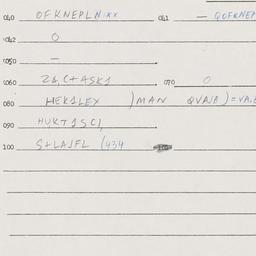 040 OFKNEPLN:XX 041 — QOFKNEP
042 O
050 —
060 Z&,C+ASK1 070 O
080 HEK1LEX )MAN QVAJA)=VA
090 HUKT1SCI,
100 S+LAJFL (434